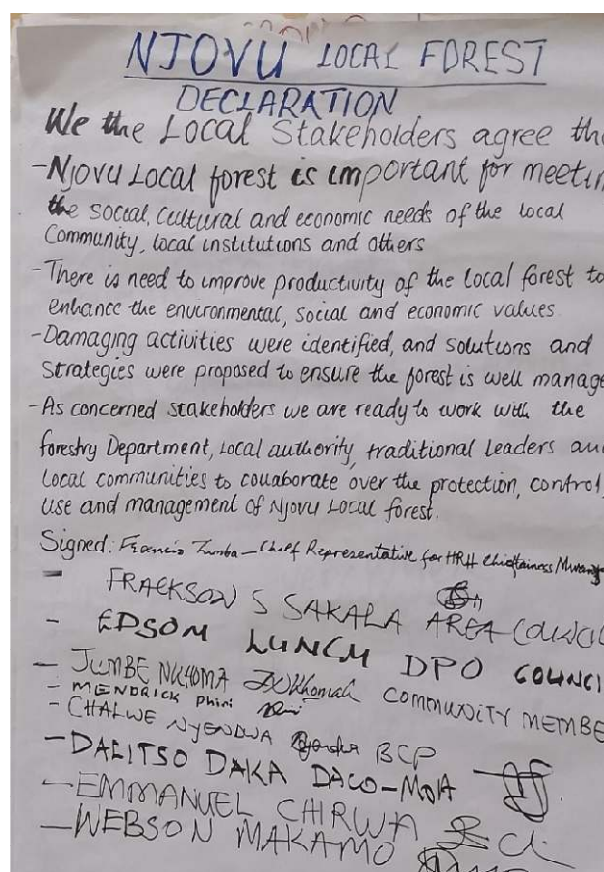 NJOVU LOCAL FOREST
DECLARATION
We the Local Stakeholders agree tha
-Njovu Local forest is important for meetin
the social, cultural and economic needs of the local
Community, local institutions and others
-There is need to improve productivity of the local forest to
enhance the environmental, social and economic values.
-Damaging activities were identified, and solutions and
Strategies were proposed to ensure the forest is well manage
-As concerned stakeholders we are ready to work with the
forestry Department, local authority, traditional leaders and
Local communities to collaborate over the protection, control
use and management of Njovu Local forest.
Signed: Francis Zumba - Chief Representative for HRH Chieftainess
- FRACKSON S SAKALA AREA COUNCIL
- EDSOM DPO COUNCI
- JUMBE NKHOMA COMMUNITY MEMBE
- MENDRICK Phiri
- CHALWE NYENDWA BCP
- DALITSO DAKA DACO-MOA
- EMMANUEL CHIRWA
- WEBSON MAKAMO